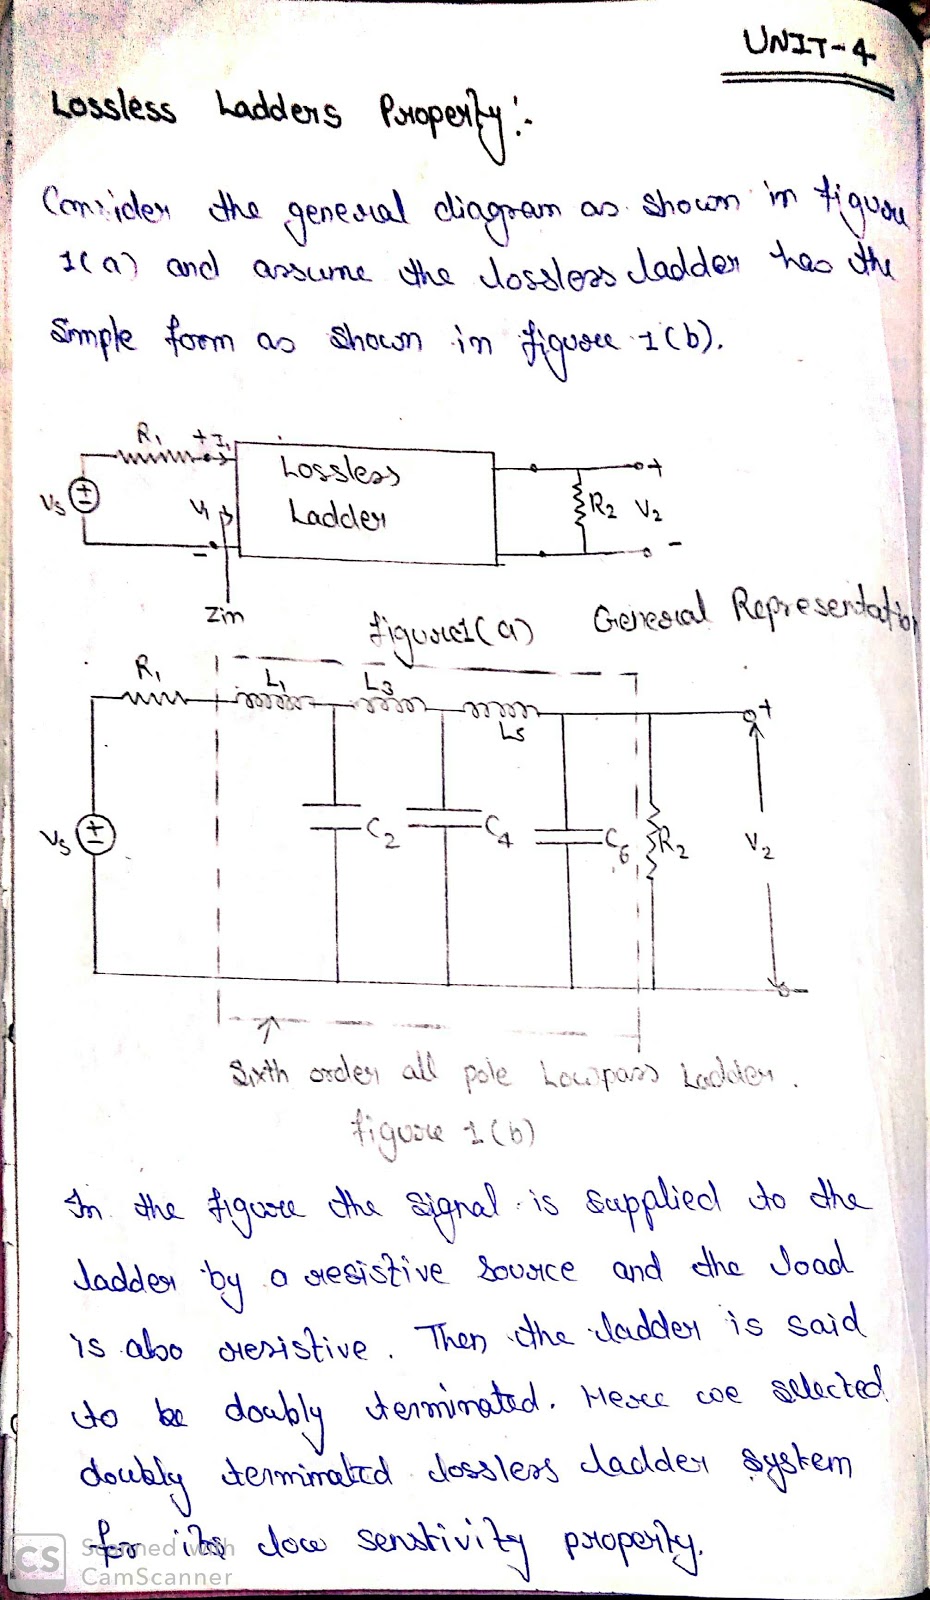 UNIT-4
Lossless Ladders Property:-
Consider the general diagram as shown in figure
1(a) and assume the lossless ladder has the
Simple form as shown in figure 1(b).
R1 + I1
Lossless
Ladder
Vs
V1
R2 V2
+
-
-
Zin
figure1(a) General Representation
R1
L1
L3
L5
+
Vs
C2
C4
C6
R2
V2
-
Sixth order all pole Lowpass Ladder.
figure 1(b)
In the figure the signal is supplied to the
ladder by a resistive source and the load
is also resistive. Then the ladder is said
to be doubly terminated. Here we selected
doubly terminated lossless ladder system
for its low senstivity property.
CS Scanned with
CamScanner